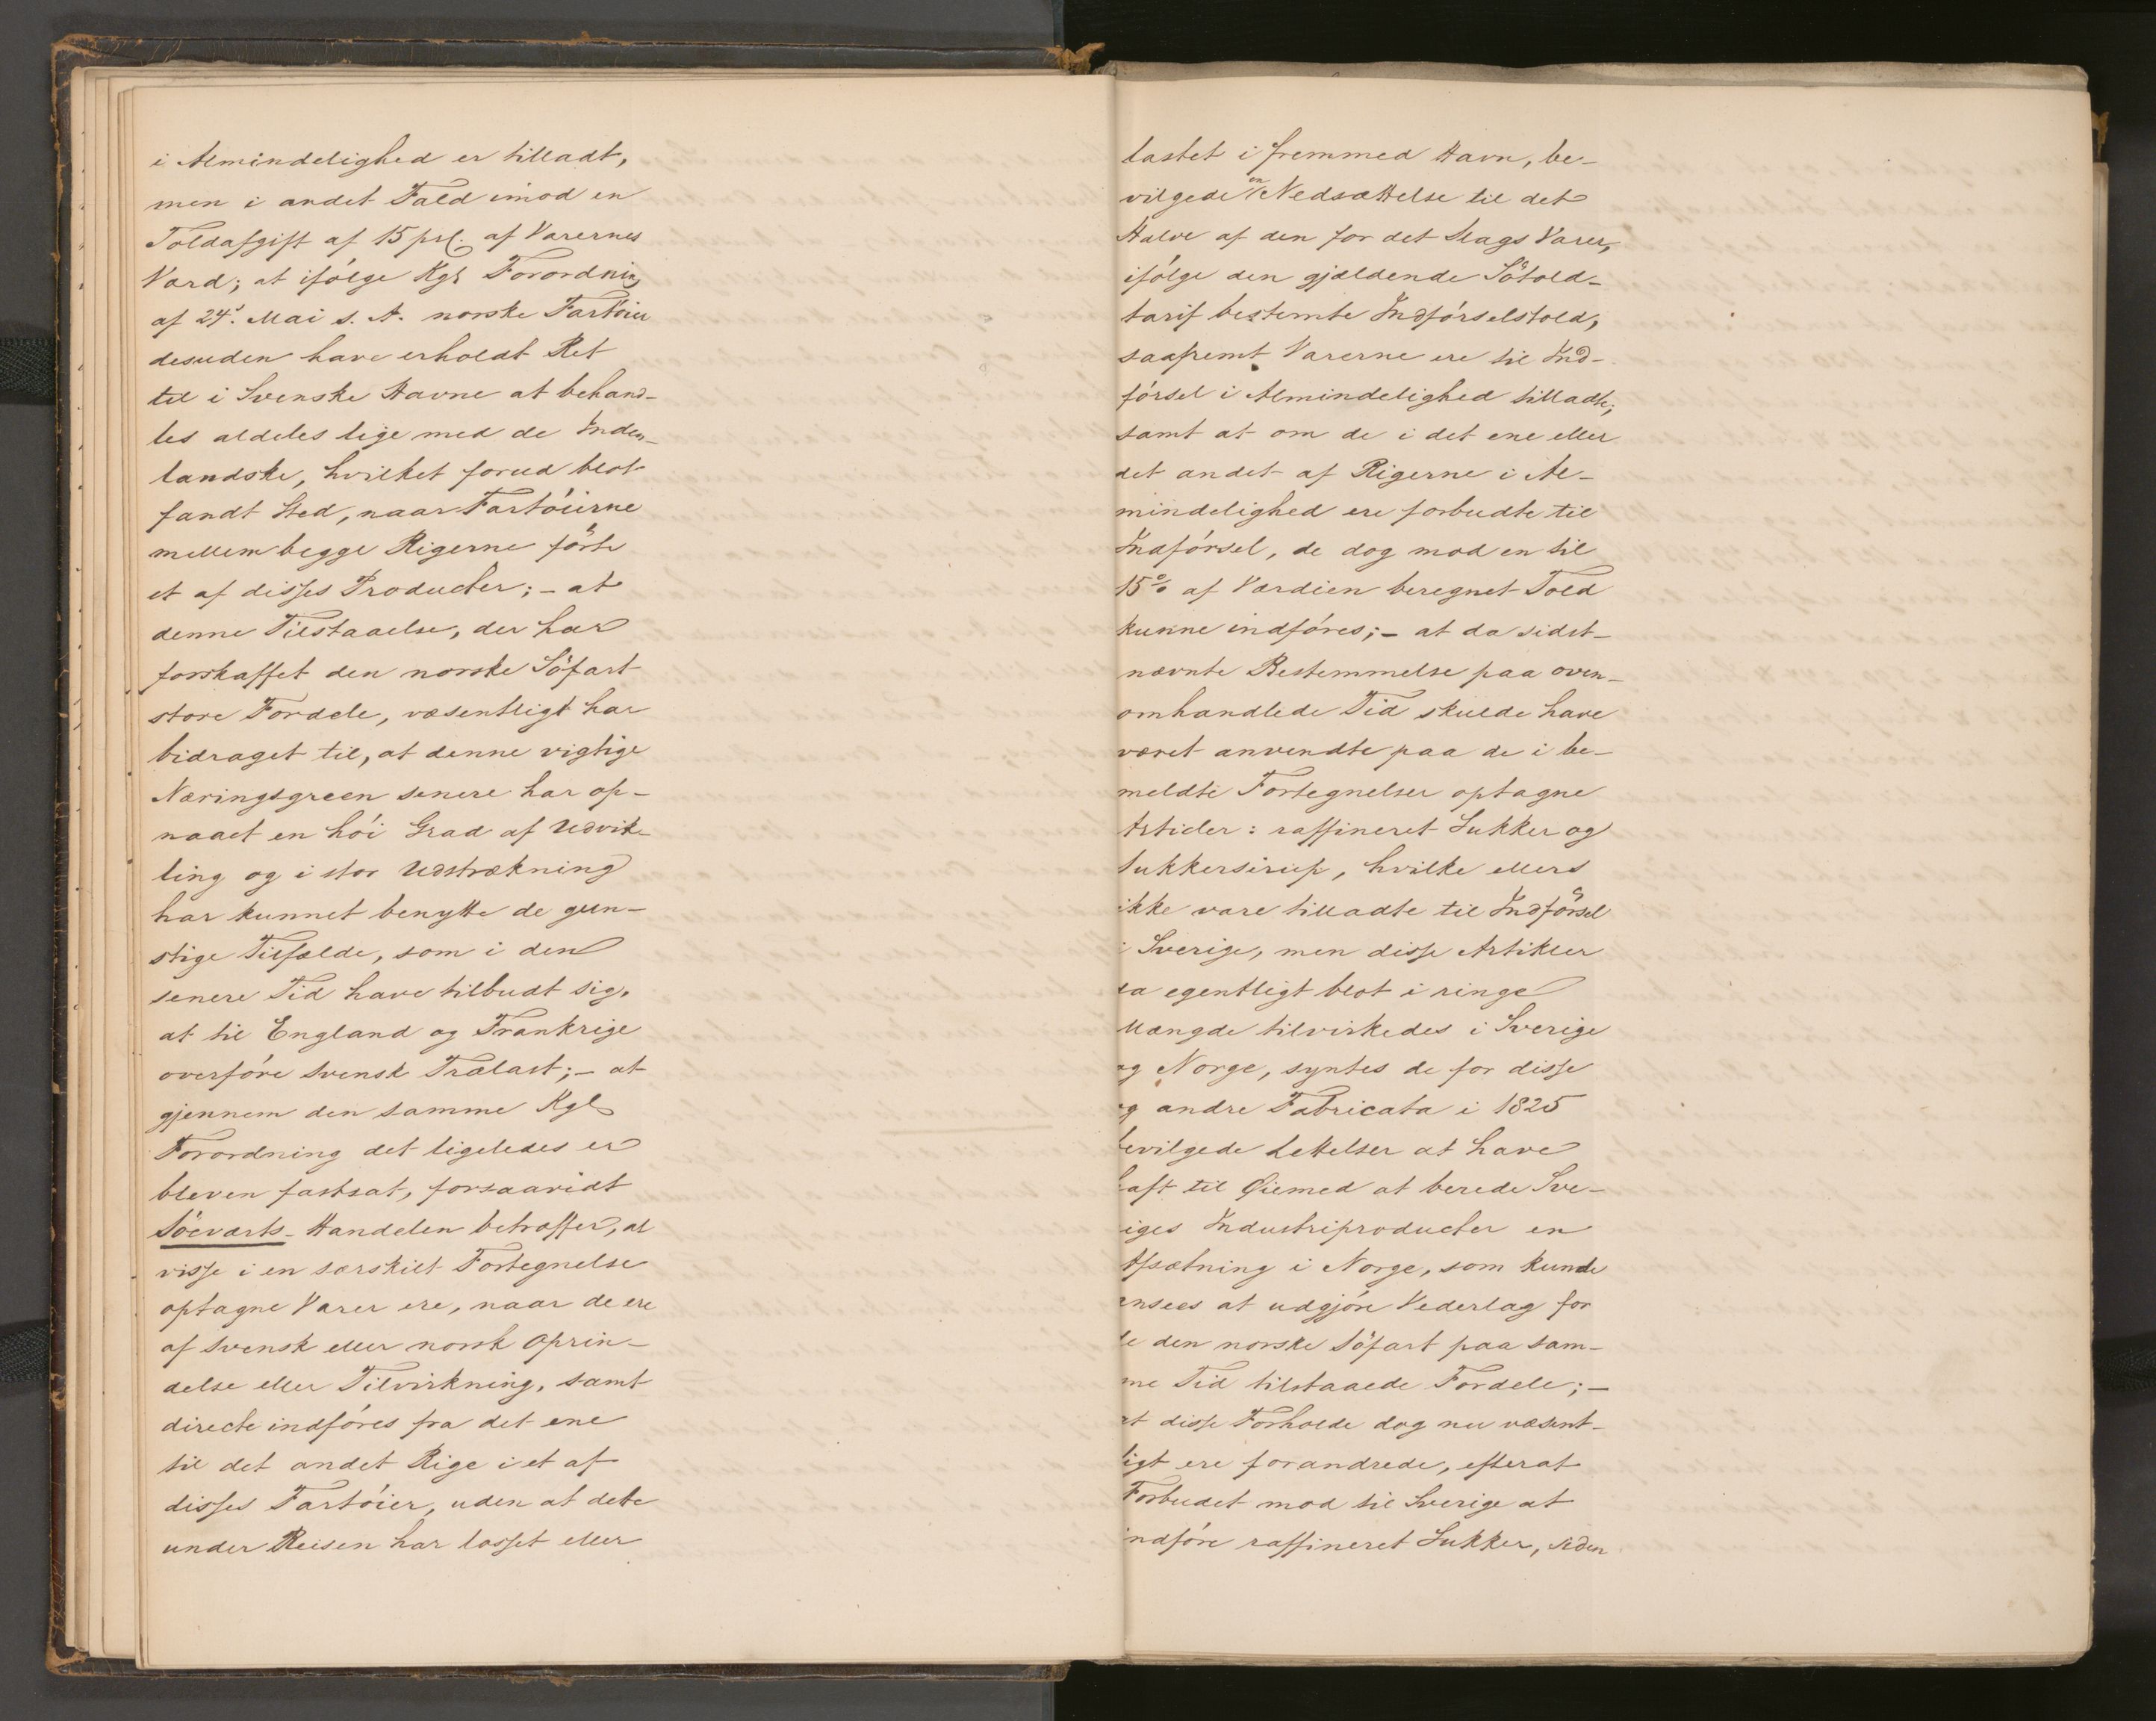 i Almindelighed er tilladt,
men i andet Fald imod en
Toldafgift af 15 prC. af Varernes
Værd; at ifölge Kgl. Forordning
af 24de Mai s. A. norske Fartöier
desuden have erholdt Ret
til i Svenske Havne at behand-
les aldeles lige med de Inden-
landske, hvilket forud blot
fandt Sted, naar Fartöierne
mellem begge Rigerne förte
et af disses Producter; – at
denne Tilstaaelse, der har
forskaffet den norske Söfart
store Fordele, væsentligt har
bidraget til, at denne vigtige
Næringsgreen senere har op-
naaet en höi Grad af Udvik-
ling og i stor Udstrækning
har kunnet benytte de gun-
stige Tilfælde, som i den
senere Tid have tilbudt sig,
at til England og Frankrige
overföre svensk Trælast; – at
gjennem den samme Kgl.
Forordning det ligeledes er
bleven fastsat, forsaavidt
Söeværts-Handelen betræffer, at
visse i en særskilt Fortegnelse
optagne Varer ere, naar de ere
af svensk eller norsk Oprin-
delse eller Tilvirkning, samt
directe indföres fra det ene
til det andet Rige i et af
disses Fartöier, uden at dette
under Reisen har losset eller
lastet i fremmed Havn, be-
vilgede en Nedsættelse til det
Halve af den for det Slags Varer,
ifölge den gjældende Sötold-
tarif bestemte Indförselstold,
saafremt Varerne ere til Ind-
försel i Almindelighed tilladte;
samt at om de i det ene eller
det andet af Rigerne i Al-
mindelighed ere forbudte til
Indförsel, de dog mod en til
15% af Værdien beregnet Told
kunne indföres; – at da sidst-
nævnte Bestemmelse paa oven-
omhandlede Tid skulde have
været anvendte paa de i be-
meldte Fortegnelser optagne
Artider: raffineret Sukker og
Sukkersirup, hvilke ellers
ikke vare tilladte til Indförsel
i Sverige, men disse Artikler
da egentligt blot i ringe
Mængde tilvirkedes i Sverige
og Norge, syntes de for disse
og andre Fabricata i 1825
bevilgede Lettelser at have
haft til Öiemed at berede Sve-
riges Industriproducter en
Afsætning i Norge, som kunde
ansees at udgjöre Vederlag for
de den norske Söfart paa sam-
me Tid tilstaaede Fordele; –
at disse Forholde dog nu væsent-
ligt ere forandrede, efterat
Forbudet mod til Sverige at
indföre raffineret Sukker, siden